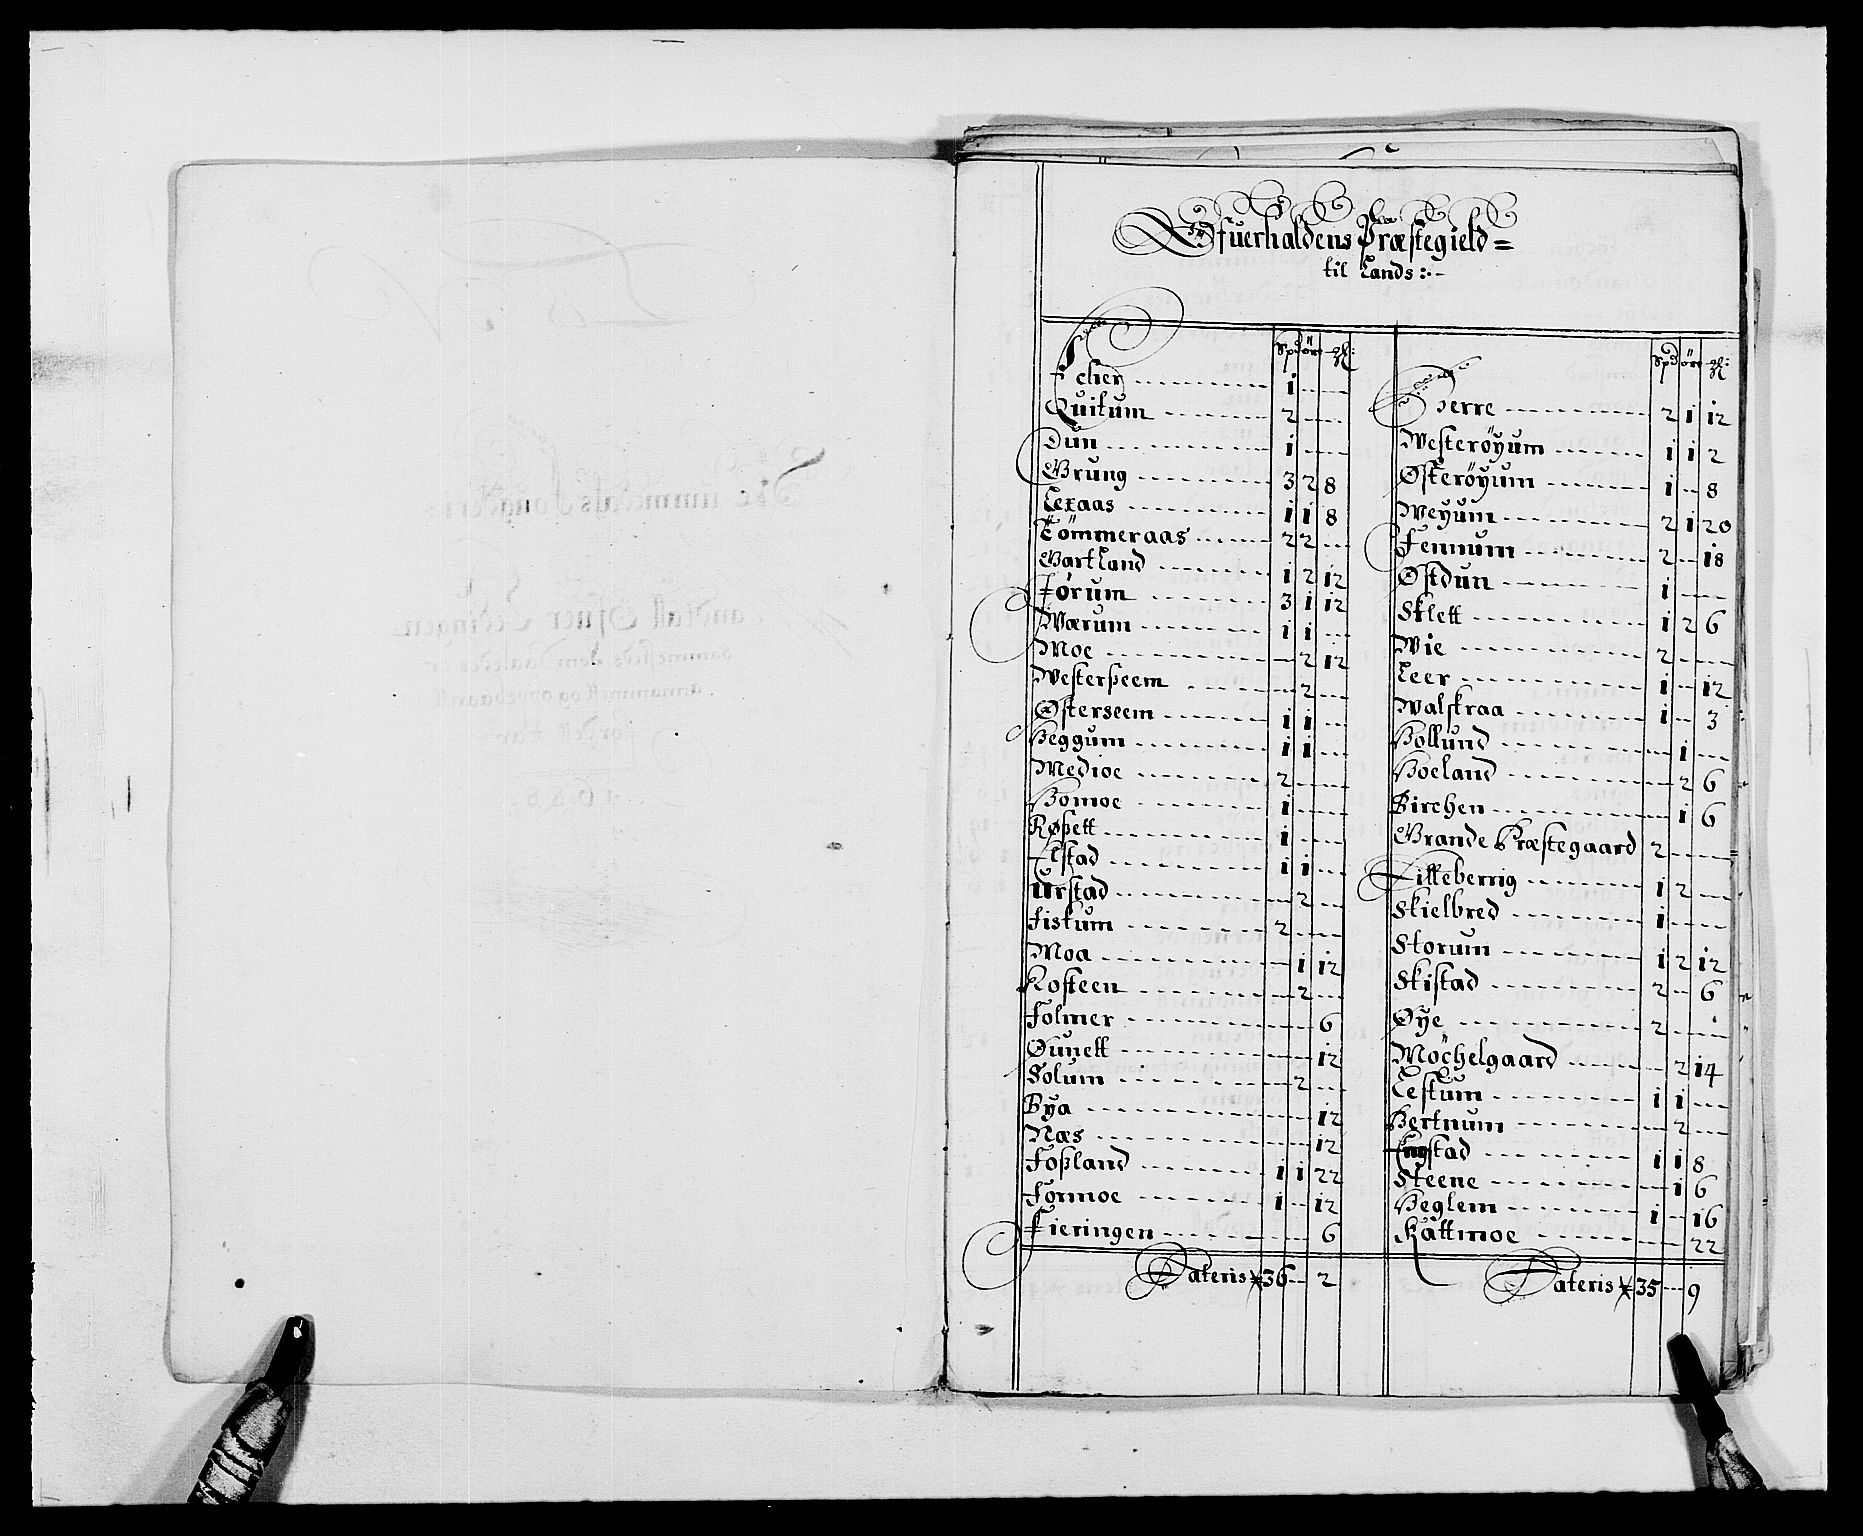 Øfuerhaldens Præstegield=
til Lands:-
Spd ör
Echer 1
Quitum 2
Dun 1
Grung 3 2 8
Lexaas 1 1 8
Tömmeraas 2 2
Gartland 1 2 12
Førum 3 1 12
Wærum 1 1
Moe 2 12
Westerseem 2
Østerseem 1 1
Heggum 1 1
Medioe 2
Homoe 1
Røßett 1
Elstad 1 1
Urstad 2
Fiskum 2
Moa 1 12
Rosteen 2
Folmer 6
Øunett 12
Solum 2
Bya 12
Næs 12
Foßland 1 1 22
Formoe 1 12
Fieringen 6
Lateris 36 2
Spd ör
Herre 2 1 12
Westerøyum 1 1 2
Østerøyum 1 8
Weyum 2 1 20
Femnum 2 18
Østdun 1
Sklett 1 2 6
Wie 2
Leer 1 12
Walskraa 1 3
Hollund 1
Hoeland 2 6
Birchen 1 6
Grande Præstegaard 2
Lilleberrig 1 2
Skielbred 1
Storum 1 2 12
Skistad 2 6
Øye 2
Möchelgaard 2 14
Lestum 1 1
Hertnum 2
Engstad 1 1 8
Steene 1 6
Heglem 1 16
Kattmoe 22
Lateris 35 9